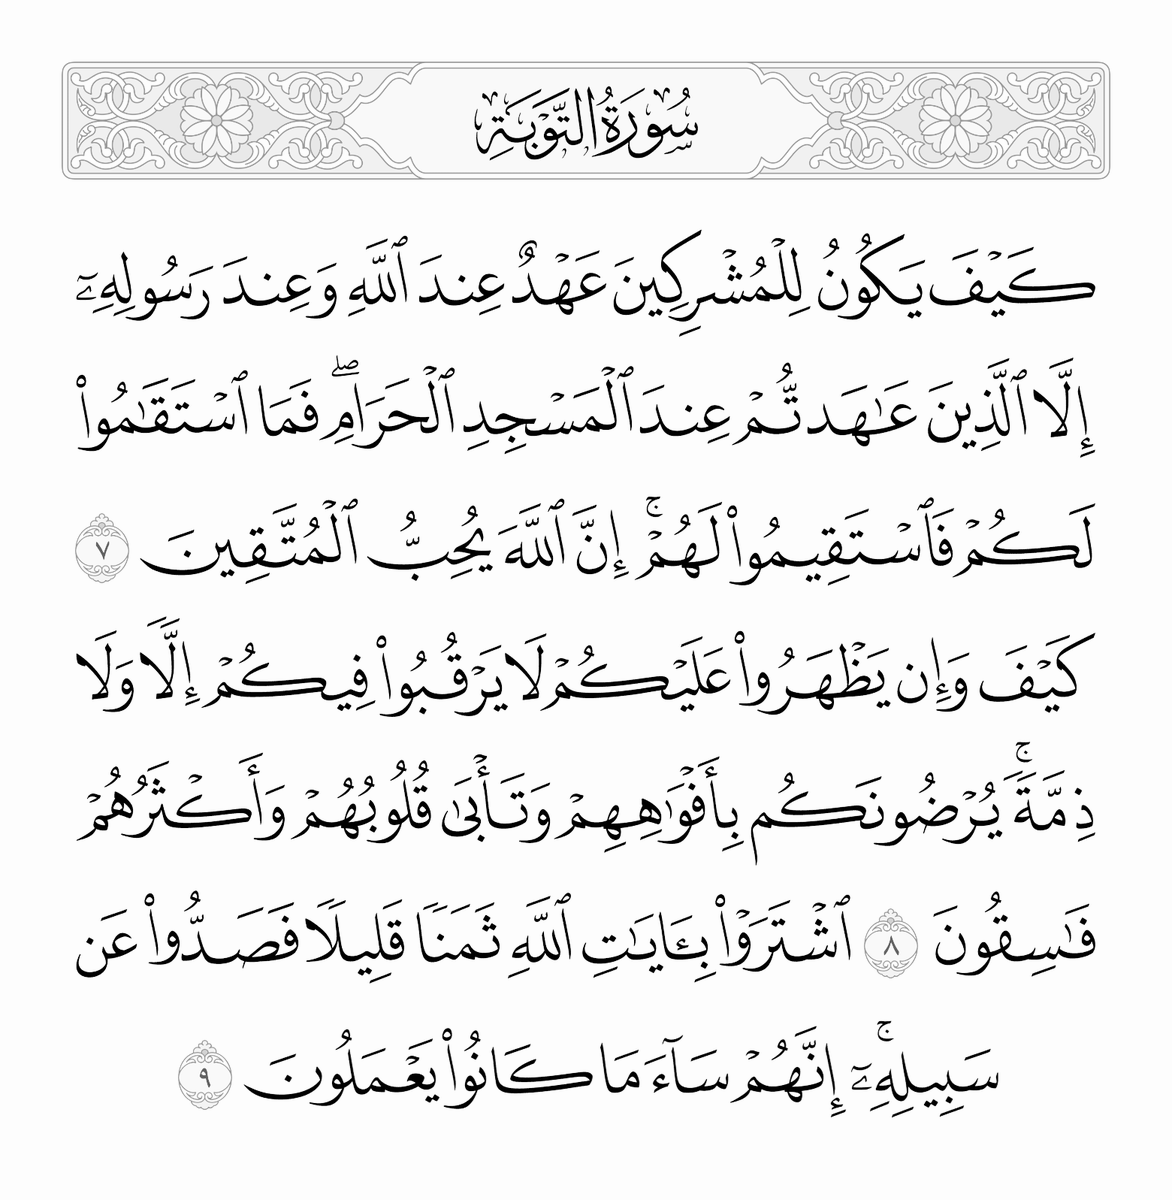 سُورَةُ التَّوۡبَةِ
كَيۡفَ يَكُونُ لِلۡمُشۡرِكِينَ عَهۡدٌ عِندَ ٱللَّهِ وَعِندَ رَسُولِهِۦٓ
إِلَّا ٱلَّذِينَ عَٰهَدتُّمۡ عِندَ ٱلۡمَسۡجِدِ ٱلۡحَرَامِۖ فَمَا ٱسۡتَقَٰمُواْ
لَكُمۡ فَٱسۡتَقِيمُواْ لَهُمۡۚ إِنَّ ٱللَّهَ يُحِبُّ ٱلۡمُتَّقِينَ ٧
كَيۡفَ وَإِن يَظۡهَرُواْ عَلَيۡكُمۡ لَا يَرۡقُبُواْ فِيكُمۡ إِلّٗا وَلَا
ذِمَّةٗۚ يُرۡضُونَكُم بِأَفۡوَٰهِهِمۡ وَتَأۡبَىٰ قُلُوبُهُمۡ وَأَكۡثَرُهُمۡ
فَٰسِقُونَ ٨ ٱشۡتَرَوۡاْ بِـَٔايَٰتِ ٱللَّهِ ثَمَنٗا قَلِيلٗا فَصَدُّواْ عَن
سَبِيلِهِۦٓۚ إِنَّهُمۡ سَآءَ مَا كَانُواْ يَعۡمَلُونَ ٩